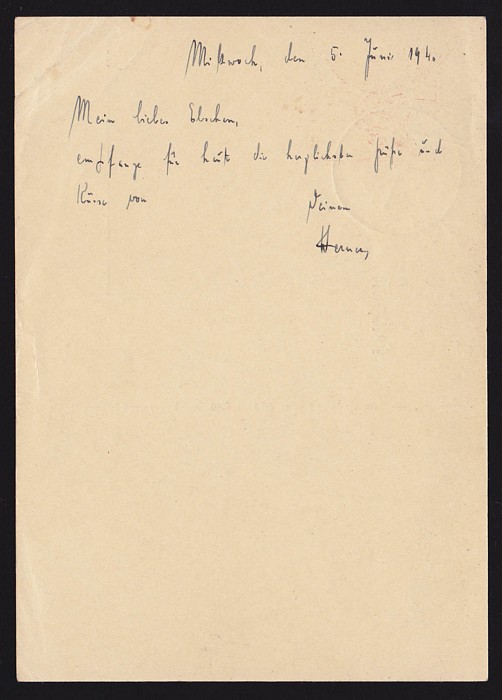 Mittwoch, den 5. Juni 1940
Mein liebes Elschen,
empfange für heute die herzlichsten Grüße und
Küsse von Deinem
Werner